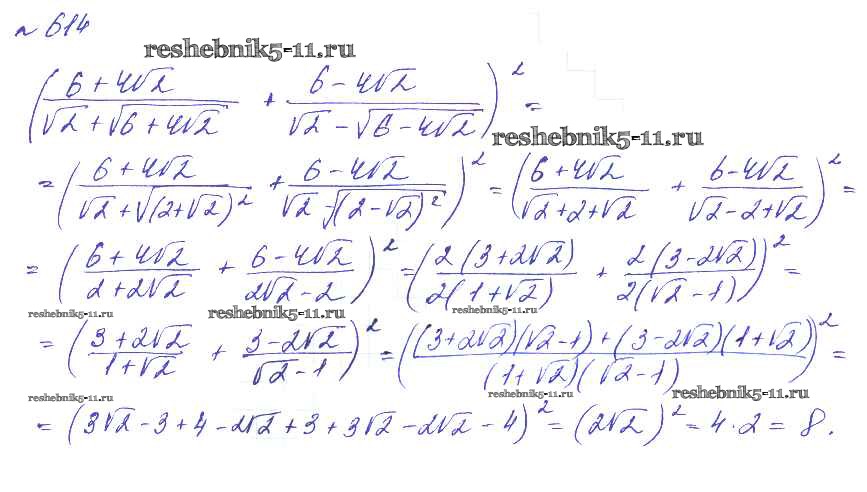 № 614
reshebnik5-11.ru
((6+4√2)/(√2+√(6+4√2)) + (6-4√2)/(√2-√(6-4√2)))² =
reshebnik5-11.ru
= ((6+4√2)/(√2+√(2+√2)²) + (6-4√2)/(√2-√(2-√2)²))² = ((6+4√2)/(√2+2+√2) + (6-4√2)/(√2-2+√2))² =
= ((6+4√2)/(2+2√2) + (6-4√2)/(2√2-2))² = (2(3+2√2)/(2(1+√2)) + 2(3-2√2)/(2(√2-1)))² =
reshebnik5-11.ru reshebnik5-11.ru reshebnik5-11.ru
= ((3+2√2)/(1+√2) + (3-2√2)/(√2-1))² = (((3+2√2)(√2-1)+(3-2√2)(1+√2))/((1+√2)(√2-1)))² =
reshebnik5-11.ru reshebnik5-11.ru reshebnik5-11.ru
= (3√2-3+4-2√2+3+3√2-2√2-4)² = (2√2)² = 4·2 = 8.